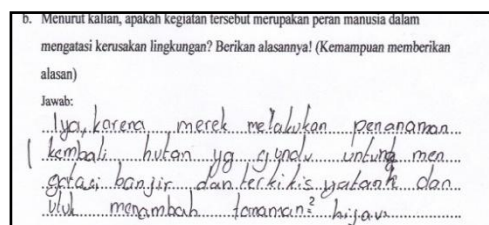 b. Menurut kalian, apakah kegiatan tersebut merupakan peran manusia dalam
mengatasi kerusakan lingkungan? Berikan alasannya! (Kemampuan memberikan
alasan)
Jawab:
Iya, karena merek melakukan penanaman
kembali hutan yg g.undu untung men
gatasi banjir dan terkikis yatanh dan
utuk menambah tanaman² hijau